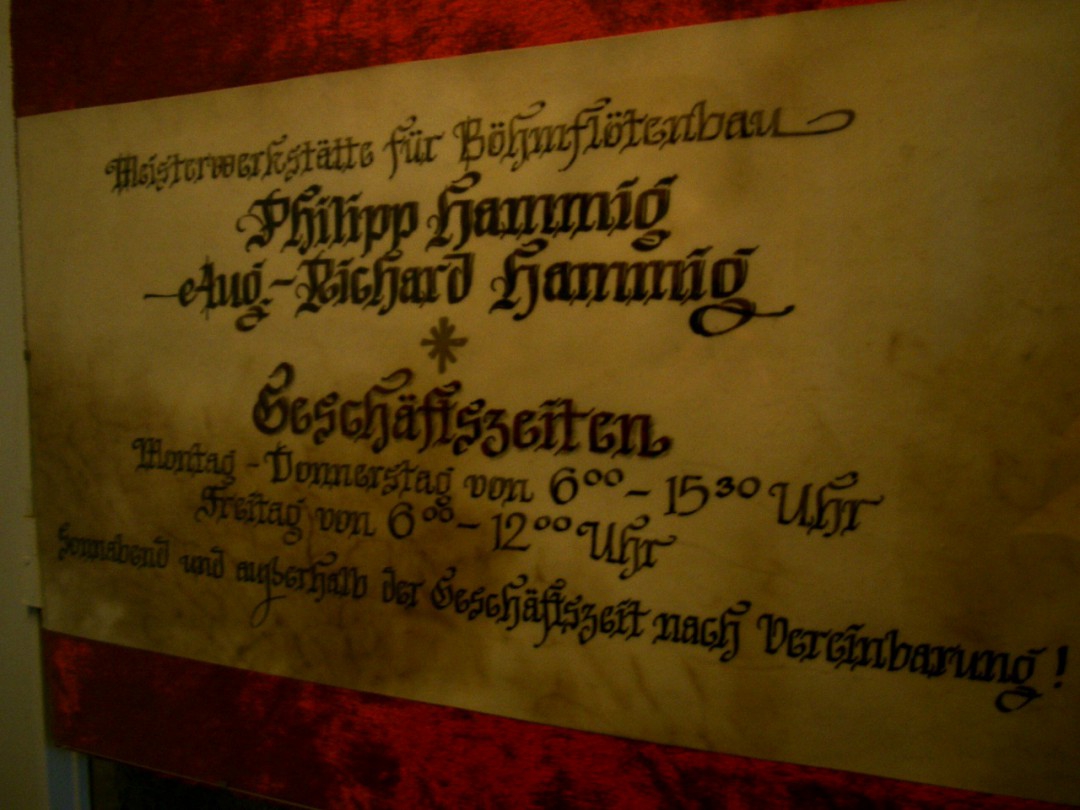 Meisterwerkstätte für Böhmflötenbau
Philipp Hammig
-Aug.-Richard Hammig
Geschäftszeiten
Montag - Donnerstag von 6⁰⁰ - 15³⁰ Uhr
Freitag von 6⁰⁰ - 12⁰⁰ Uhr
Sonnabend und außerhalb der Geschäftszeit nach Vereinbarung!